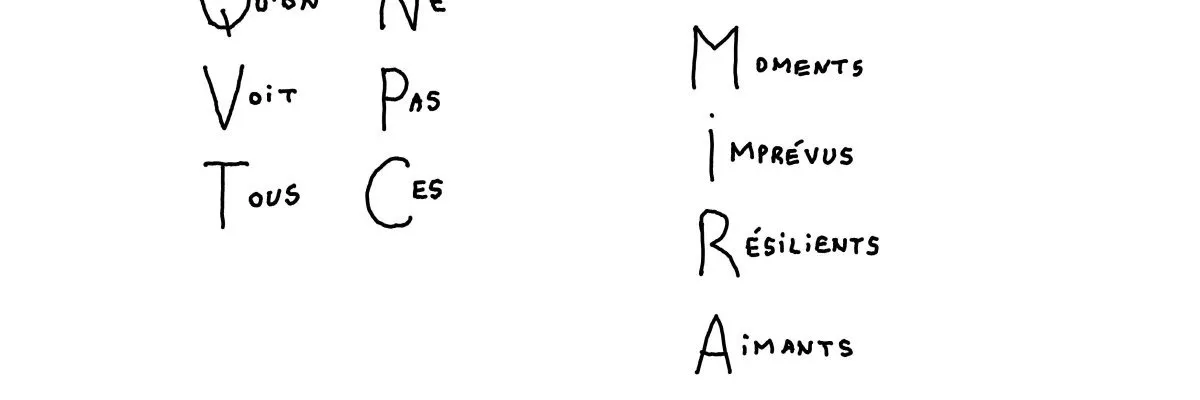 Qu'on Ne
Voit Pas
Tous Ces
Moments
imprévus
Résilients
Aimants